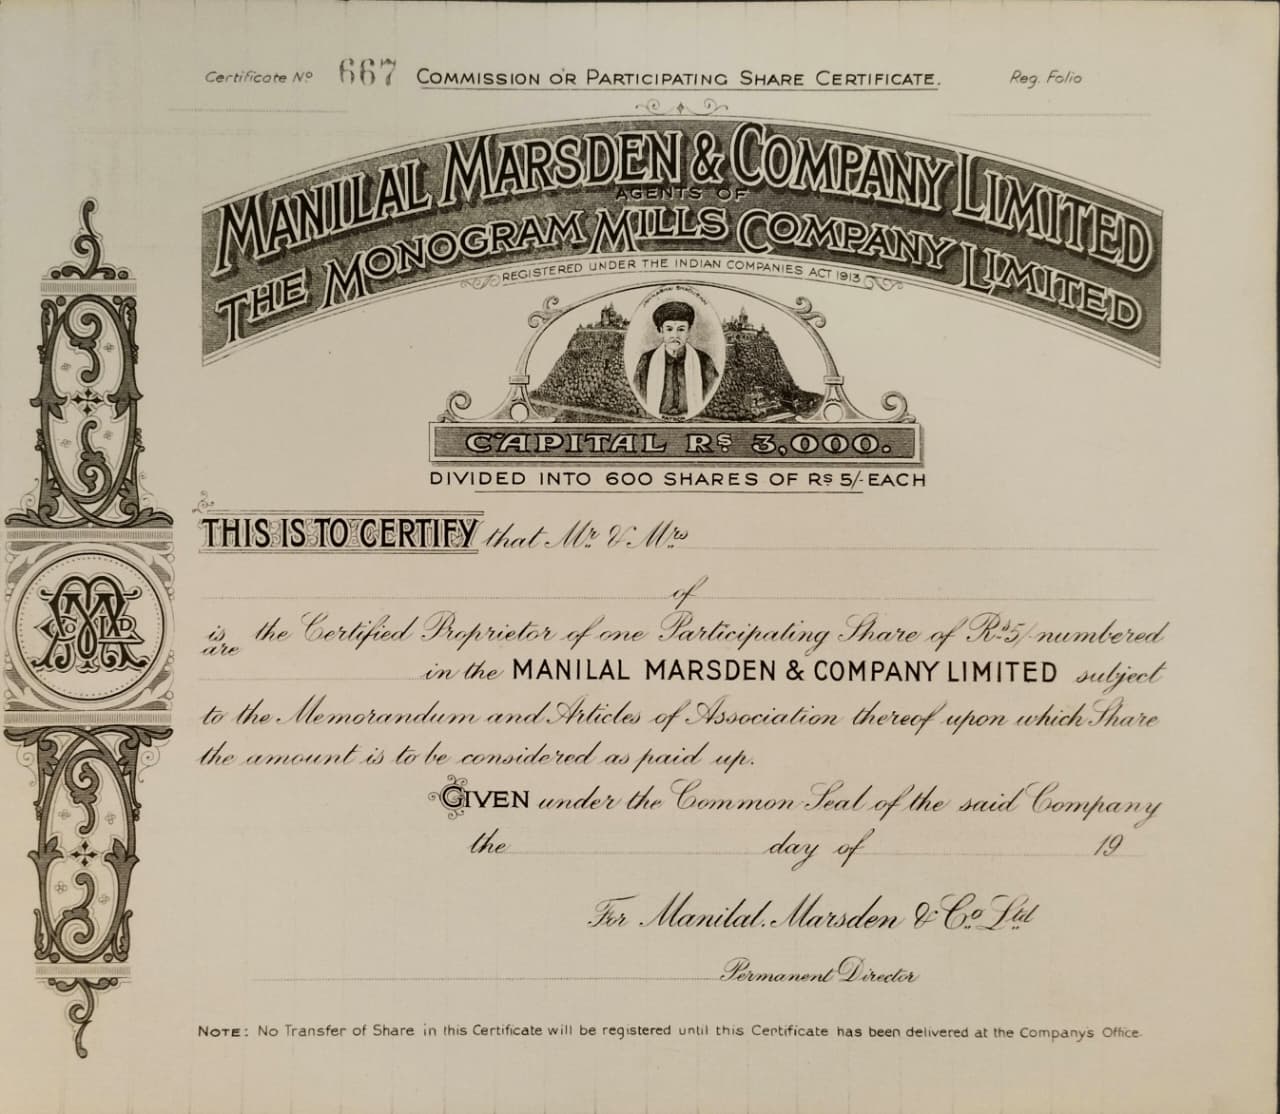 Certificate No 667 COMMISSION OR PARTICIPATING SHARE CERTIFICATE. Reg. Folio
MANILAL MARSDEN & COMPANY LIMITED
AGENTS OF
THE MONOGRAM MILLS COMPANY LIMITED
REGISTERED UNDER THE INDIAN COMPANIES ACT 1913
CAPITAL Rs 3,000.
DIVIDED INTO 600 SHARES OF Rs 5/- EACH
THIS IS TO CERTIFY that Mr. & Mrs
of
is are the Certified Proprietor of one Participating Share of Rs 5/- numbered
in the MANILAL MARSDEN & COMPANY LIMITED subject
to the Memorandum and Articles of Association thereof upon which Share
the amount is to be considered as paid up.
GIVEN under the Common Seal of the said Company
the day of 19
For Manilal Marsden & Co. Ltd
Permanent Director
NOTE: No Transfer of Share in this Certificate will be registered until this Certificate has been delivered at the Company's Office.